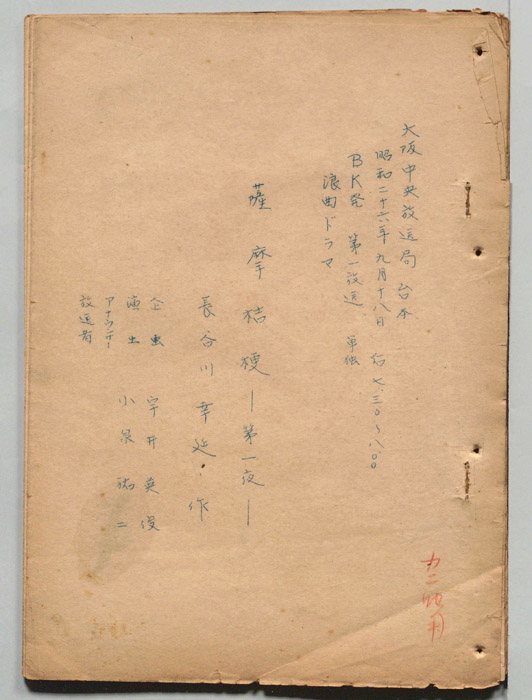 大阪中央放送局 台本
昭和二十六年九月十八日 后七.三〇〜八.〇〇
BK発 第一放送 単独
浪曲ドラマ
薩摩桔梗 ー第一夜ー
長谷川幸延・作
企画 宇井英俊
演出 小泉端二
アナウンサー
放送者